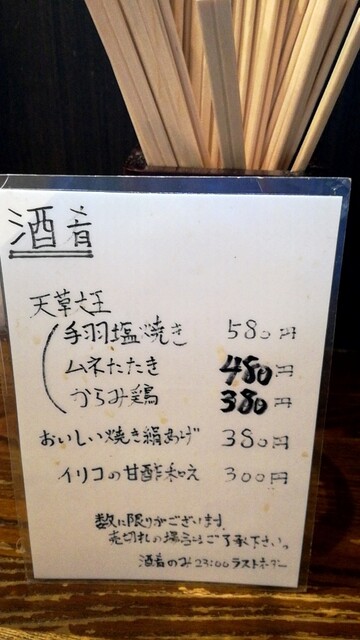 酒肴
天草大王
手羽塩焼き 580円
ムネたたき 480円
からみ鶏 380円
おいしい焼き絹あげ 380円
イリコの甘酢和え 300円
数に限りがございます。
売切れの場合はご了承下さい。
酒肴のみ23:00ラストオーダー